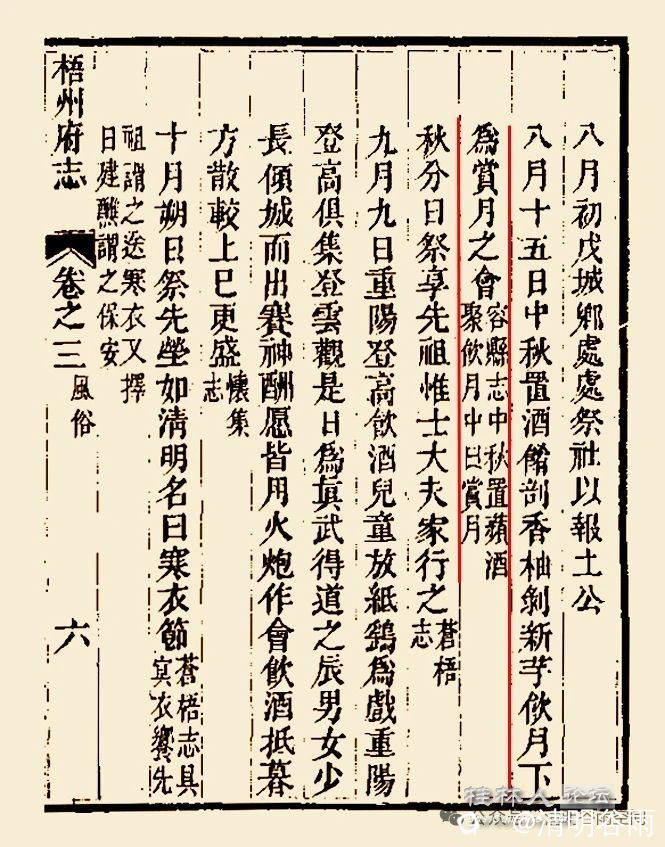 八月初戊城鄉處處祭社以報土公
八月十五日中秋置酒餚剖香柚剝新芋飲月下
為賞月之會容縣志中秋置蘋酒
聚飲月中曰賞月
秋分日祭享先祖惟士大夫家行之蒼梧
志
九月九日重陽登高飲酒兒童放紙鷂為戲重陽
登高俱集登雲觀是日為真武得道之辰男女少
長傾城而出賽神酬愿皆用火炮作會飲酒抵暮
方散較上巳更盛懷集
志
十月朔日祭先塋如清明名曰寒衣節蒼梧志具
寘衣饗先
祖謂之送寒衣又擇
日建醮謂之保安
梧州府志
卷之三
風俗
六
桂林人论坛
@清明谷雨